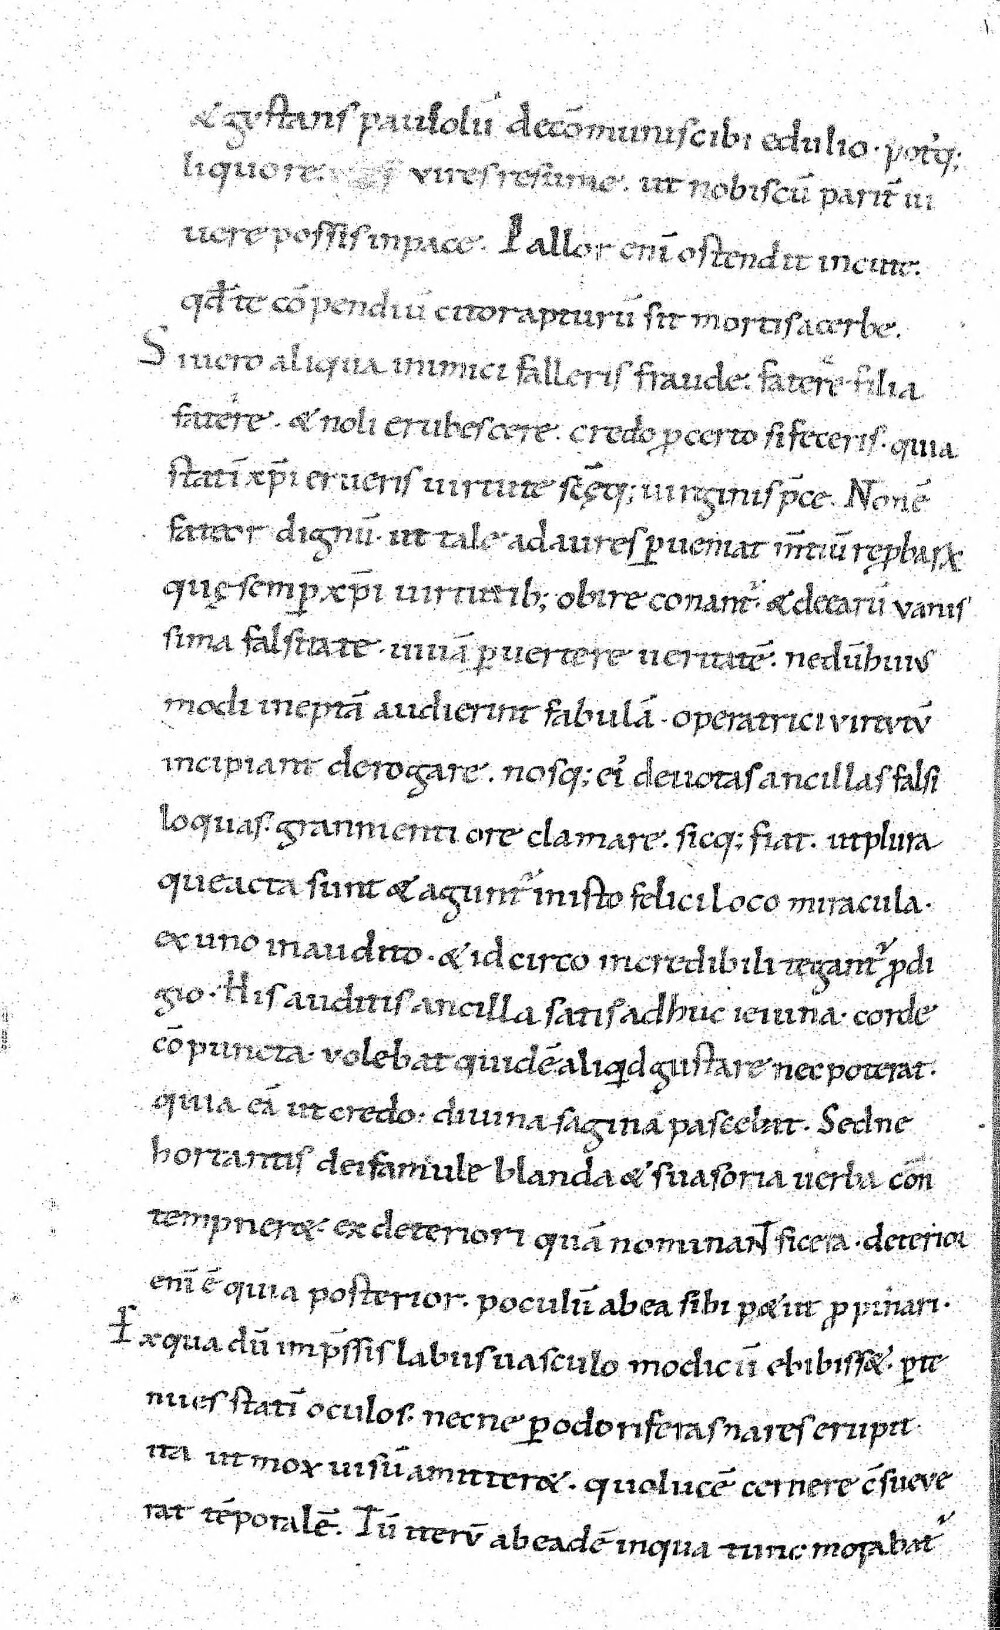 & gustans paululū decōmunis cibi edulio. potꝰq;
liquore. vires resume. ut nobiscū parit̄ ui
uere possis in pace. Pallor enī ostendit in cute.
qđ te cōpendiū cito rapturū sit mortis acerbe.
Si uero aliqua inimici falleris fraude. faterẽ filia
faterẽ. & noli erubescere. credo ꝑ certo si feceris. quia
statī xp̄i erueris uirtute sc̄ęq; uirginis p̄ce. Non ē
fateor dignū. ut tale ad aures ꝑueniat m̄tiū rep̱bas &
quę semꝑ xp̄i uirtutib; obire conant̃. & decartū vanis
sima falsitate. uiuā ꝑuertere ueritatē. ne dū huius
modi ineptā audierint fabulā. operatrici virtutū
incipiant derogare. nosq; ei deuotas ancillas falsi
loquas. granmenti ore clamare. sicq; fiat. ut plura
que acta sunt & agunt̃ in isto felici loco miracula.
ex uno inaudito. & idcirco incredibili tegant̃ ꝓdi
gio. His auditis ancilla satis adhuc ieiuna. corde
cōpuncta. volebat quidē aliqid gustare nec poterat.
quia eā ut credo. diuina sagina pascebat. Sed ne
hortantis dei famule blanda & suasoria uerba con
tempner&. ex deteriori quā nominaNT sicera. deterior
enī ē quia posterior. poculū ab ea sibi p&iit ꝓpinari.
Ex qua dū imp̄ssis labiis uasculo modicū ebibiss&. ꝑte
nues statī oculos. necne ꝑ odoriferas nares erupit
ita ut mox uisū amitter&. quo lucē cernere c̄sueve
rat tēporalē. Tū iterū ab eadē inqua tunc morabat̃